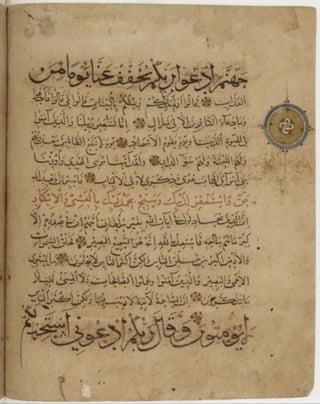 جهنم ادعوا ربكم يخفف عنا يوما من
العذاب قالوا اولم تك تاتيكم رسلكم بالبينات قالوا بلى قالوا فادعوا
وما دعاء الكافرين الا في ضلال انا لننصر رسلنا والذين آمنوا
في الحيوة الدنيا ويوم يقوم الاشهاد يوم لا ينفع الظالمين معذرتهم
ولهم اللعنة ولهم سوء الدار ولقد آتينا موسى الهدى واورثنا
بني اسرائيل الكتاب هدى وذكرى لاولي الالباب فاصبر ان وعد الله
حق واستغفر لذنبك وسبح بحمد ربك بالعشي والابكار
ان الذين يجادلون في آيات الله بغير سلطان اتيهم ان في صدورهم الا
كبر ما هم ببالغيه فاستعذ بالله انه هو السميع البصير لخلق السموات
والارض اكبر من خلق الناس ولكن اكثر الناس لا يعلمون وما يستوي
الاعمى والبصير والذين آمنوا وعملوا الصالحات ولا المسيء قليلا
ما تتذكرون ان الساعة لآتية لا ريب فيها ولكن اكثر الناس
لا يومنون وقال ربكم ادعوني استجب لكم